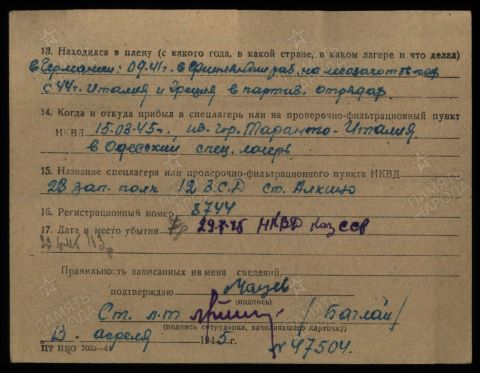 13. Находился в плену (с какого года, в какой стране, в каком лагере и что делал)
в Германии: 09.41г. в Финляндии раб. на лесозагот
с 44 г. Италия и Греция в партиз. отрядах
14. Когда и откуда прибыл в спецлагерь или на проверочно-фильтрационный пункт
НКВД 15.03.45г. из гор. Таранто-Италия
в Одесский спец. лагерь
15. Название спецлагеря или проверочно-фильтрационного пункта НКВД
28 зап. полк 12 З.С.Д ст. Алкино
16. Регистрационный номер 8744
17. Дата и место убытия НКВД Каз ССР
Правильность записанных на меня сведений
подтверждаю
(подпись)
Ст. л-т /Баглай/
(подпись сотрудника, заполнявшего карточку)
13. апреля 1945г. №47504.
ЦТ НКО
ПАМЯТЬ НАРОДА